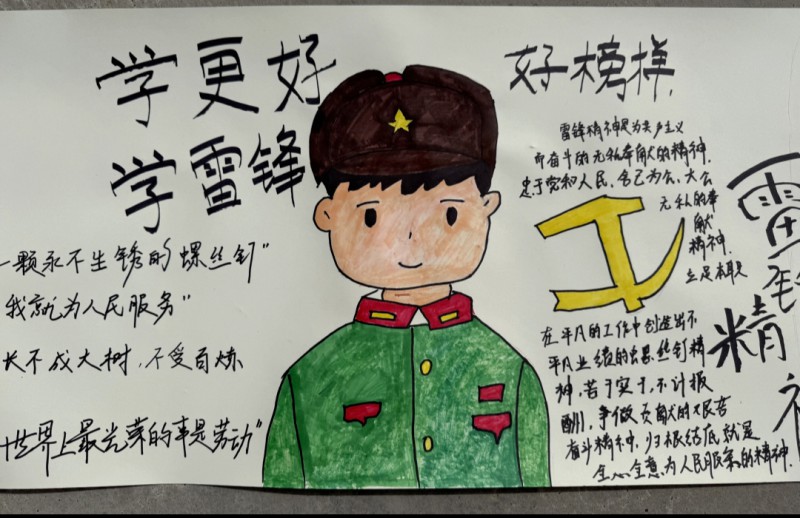 学更好
学雷锋
一颗永不生锈的螺丝钉"
我就为人民服务"
长不成大树，不受百炼
世界上最光荣的事是劳动"
好榜样
雷锋精神是为共产主义
而奋斗的无私奉献的精神，
忠于党和人民，舍己为公，大公
无私的奉
献
精神，
立足本职
在平凡的工作中创造出不
平凡业绩的螺丝钉精
神，苦干实干，不计报
酬，争做贡献的艰苦
奋斗精神，归根结底就是
全心全意为人民服务的精神。
雷锋
精